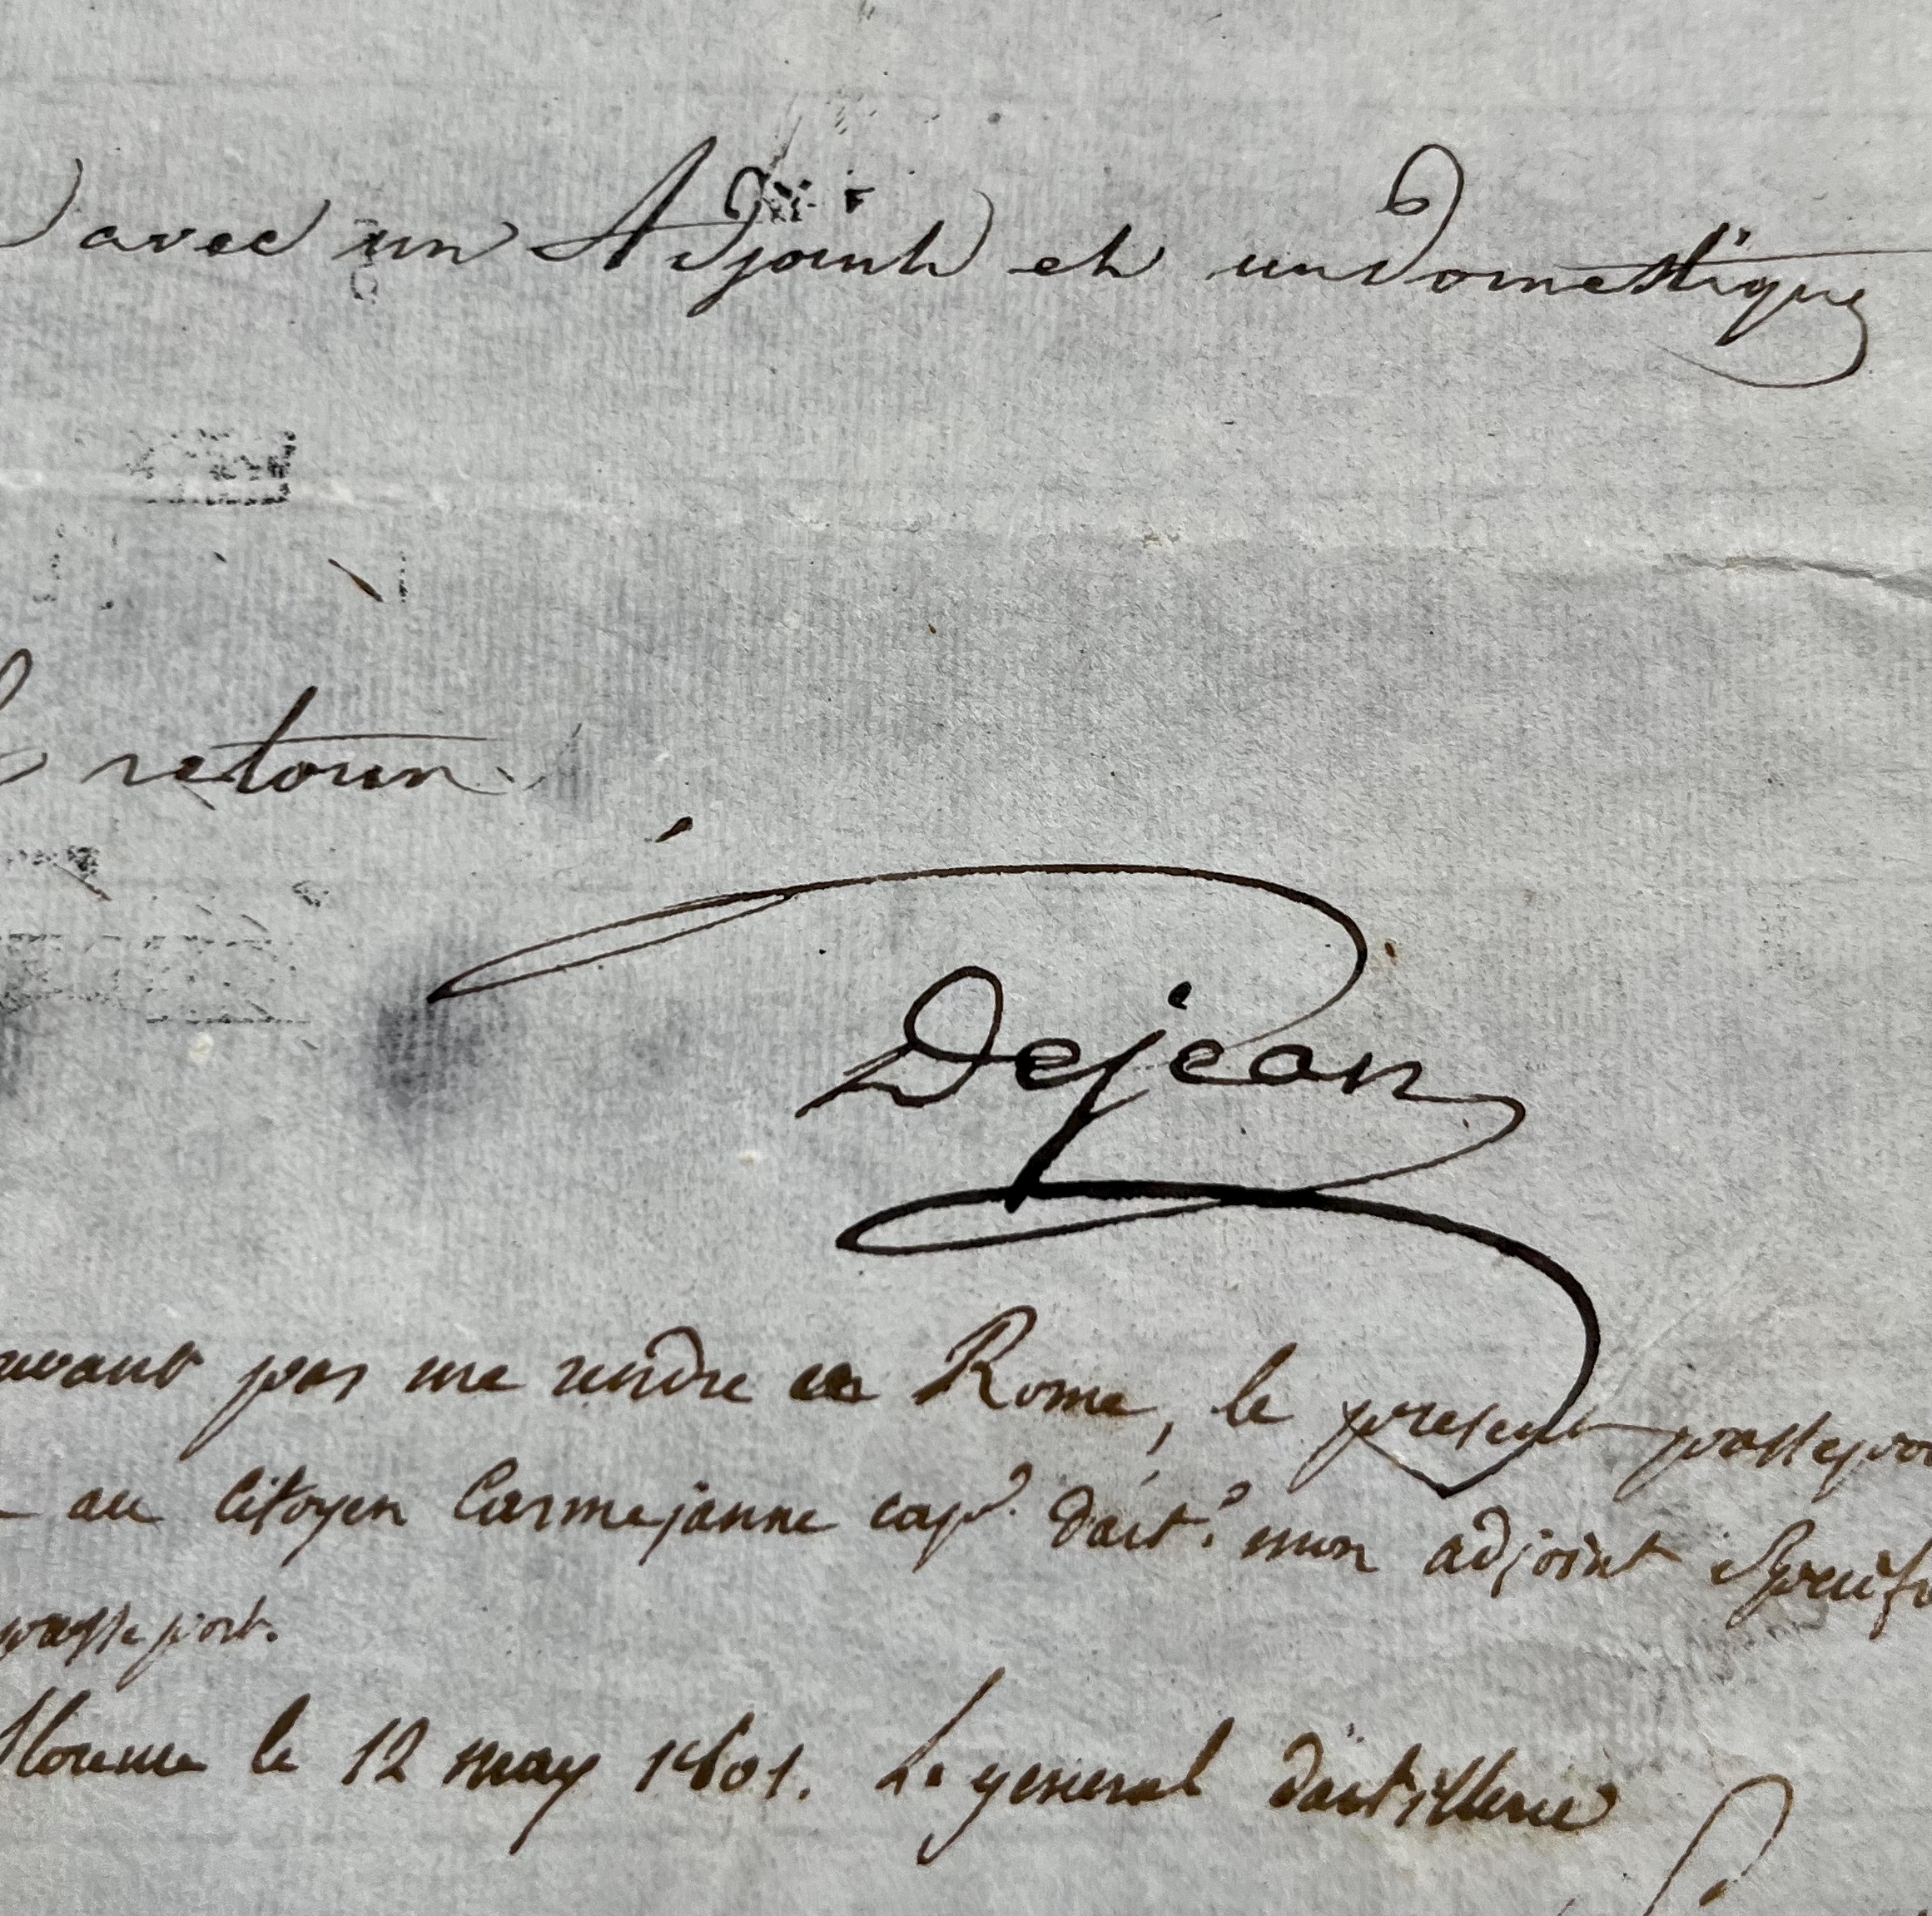 avec un Adjoint et un domestique
retour
Dejean
pas me rendre a Rome, le present passepor
au Citoyen Carmejanne cap.e d'art.e mon adjoint
passe port.
florence le 12 may 1801. Le general d'artillerie